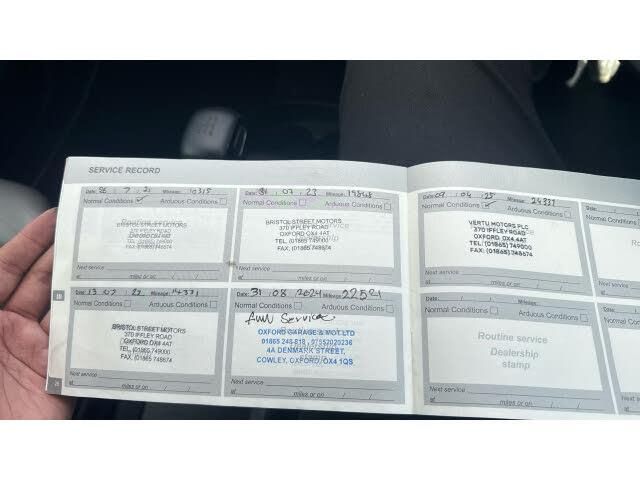 SERVICE RECORD
Date: 26 . 7 . 21 Mileage: 10315
Normal Conditions Arduous Conditions
BRISTOL STREET MOTORS
370 IFFLEY ROAD
OXFORD OX4 4AT
TEL. (01865) 749000
FAX. (01865) 748674
Next service
at miles or on / /
Date: 13 . 07 . 22 Mileage: 14371
Normal Conditions Arduous Conditions
BRISTOL STREET MOTORS
370 IFFLEY ROAD
OXFORD OX4 4AT
TEL. (01865) 749000
FAX. (01865) 748674
Next service
at miles or on / /
Date: 07 . 23 Mileage: 19848
Normal Conditions Arduous Conditions
BRISTOL STREET MOTORS
370 IFFLEY ROAD
OXFORD OX4 4AT
TEL. (01865) 749000
FAX. (01865) 748674
Next service
at miles or on / /
Date: 31 . 08 . 2024 Mileage: 22521
Normal Conditions Arduous Conditions
Service
OXFORD GARAGE & MOT LTD
01865 248 818 , 07552020236
4A DENMARK STREET,
COWLEY, OXFORD, OX4 1QS
Next service
at miles or on / /
Date: 09 . 04 . 25 Mileage: 24337
Normal Conditions Arduous Conditions
VERTU MOTORS PLC
370 IFFLEY ROAD
OXFORD OX4 4AT
TEL. (01865) 749000
FAX. (01865) 748674
Next service
at miles or on / /
Date: / / Mileage:
Normal Conditions Arduous Conditions
Routine service
Dealership
stamp
Next service
at miles or on / /
Date:
Normal Con
Ro
Date:
Normal Co
Next serv
at